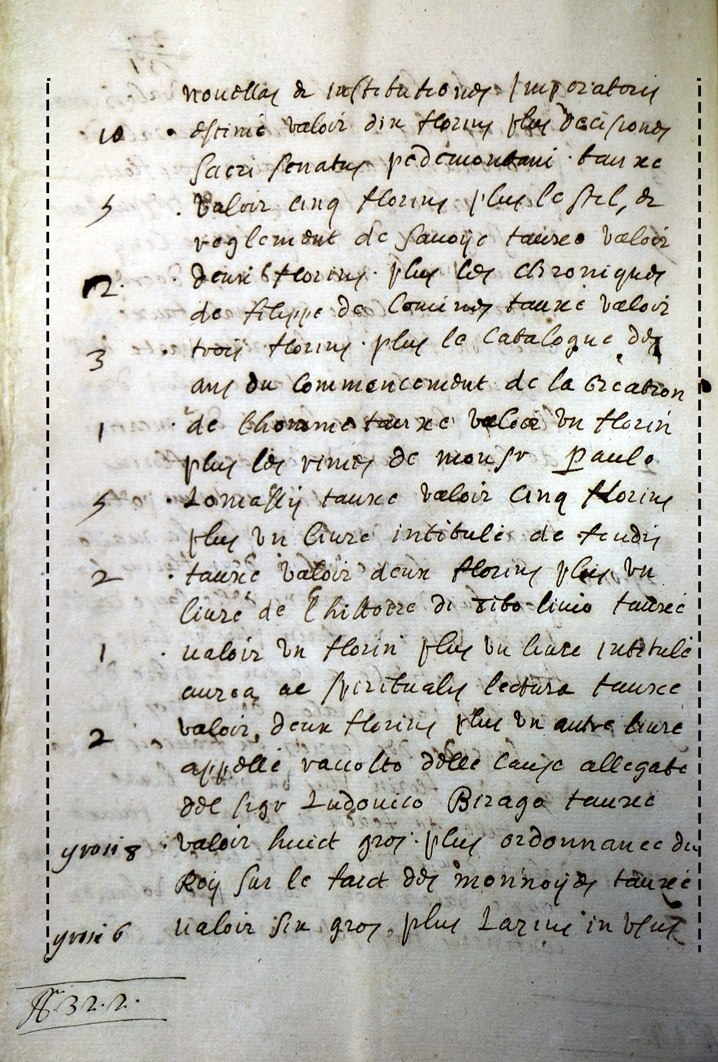 nouellas & institutiones Imperatoris
10 · estimé valoir dix florins plus decisiones
sacri senatus pedemontani · tauxé
5 · valoir cinq florins plus le stil, &
reglement de Sauoÿe tauxé valoir
2 · deux florins · plus les chroniques
de filippe de Comines tauxé valoir
3 · trois florins · plus le Catalogue des
ans du commencement de la Creation
1 · de lhomme tauxé valoir vn florin
plus les rimes de monsr Paulo
5 · Lomassij tauxé valoir cinq florins
plus vn liure intitulé de feudis
2 · tauxé valoir deux florins plus vn
liure de lhistoire di tito liuio tauxé
1 · ualoir vn florin plus vn liure intitulé
aurea ac spiritualis lectura tauxé
2 valoir, deux florins plus vn autre liure
appellé raccolto delle cause allegate
del sigr Ludouico Birago tauxé
grossi 8 · valoir huict gros · plus ordonnance du
Roÿ sur le faict des monnoÿes tauxé
grossi 6 ualoir six gros plus Lazius in
32 · 2 ·